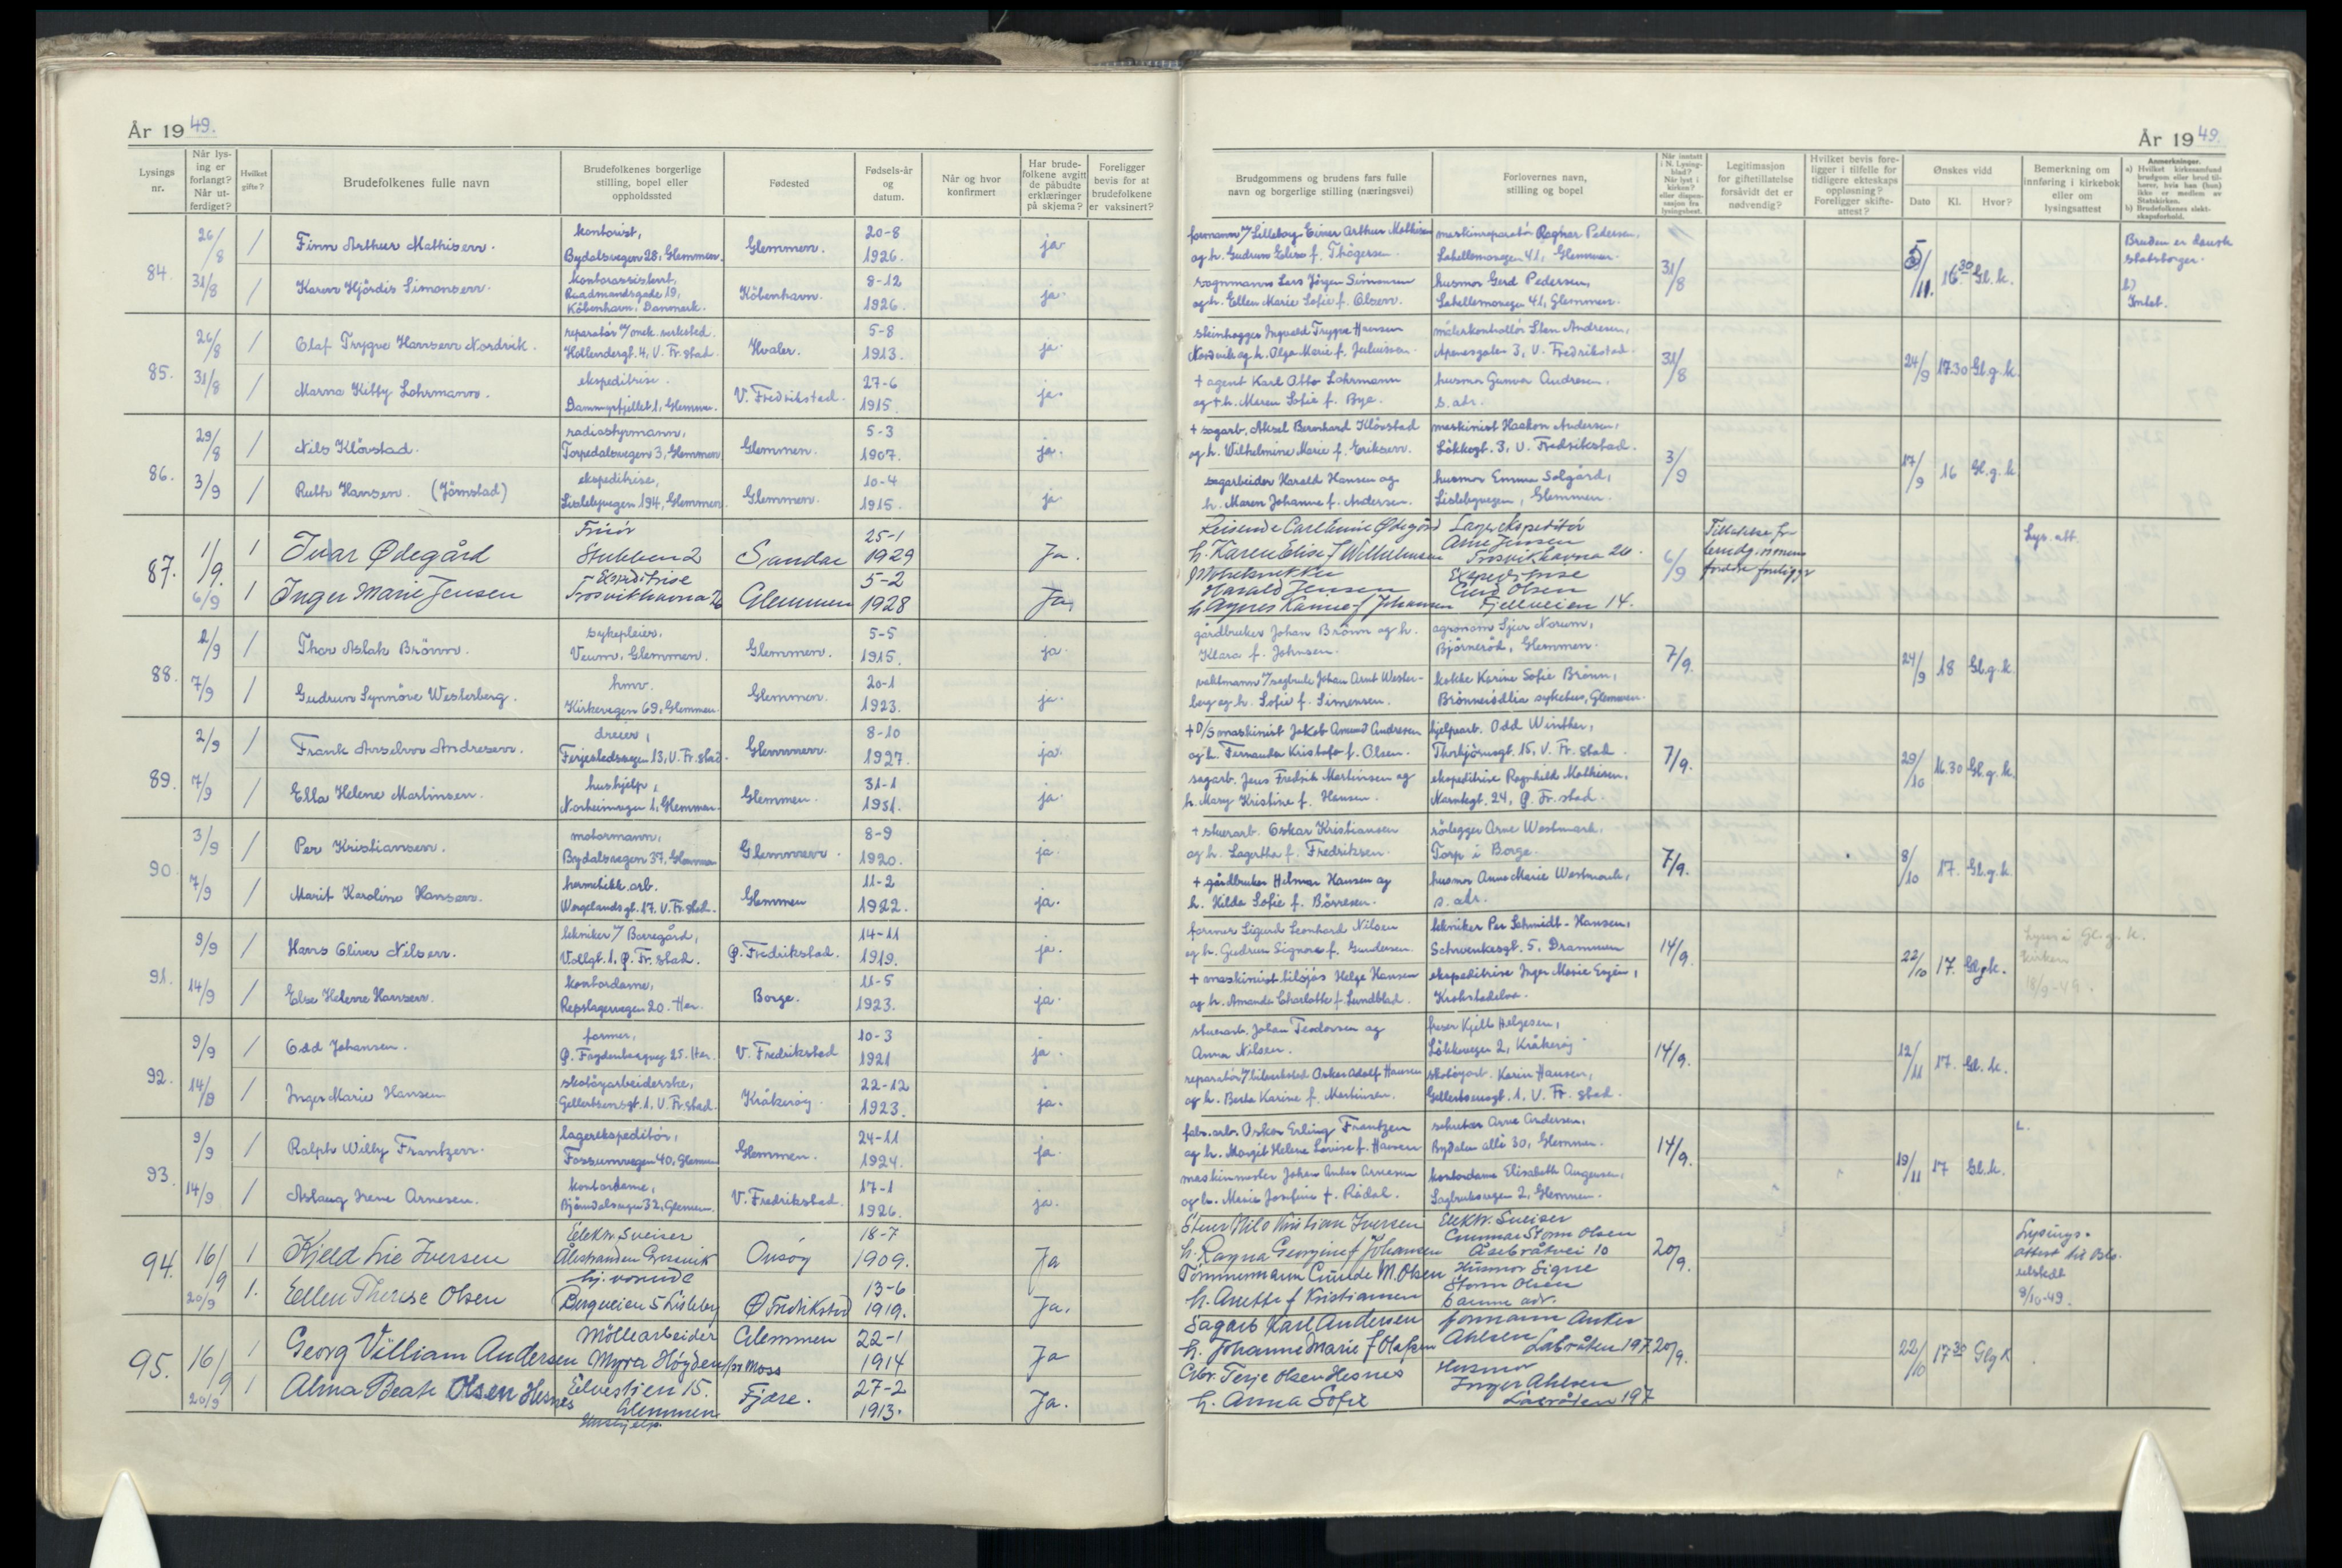 År 1949.
Lysings nr.
Når lysing er forlangt? Når utferdiget?
Hvilket gifte?
Brudefolkenes fulle navn
Brudefolkenes borgerlige stilling, bopel eller oppholdssted
Fødested
Fødsels-år og datum.
Når og hvor konfirmert
Har brudefolkene avgitt de påbudte erklæringer på skjema?
Foreligger bevis for at brudefolkene er vaksinert?
84. 26/8 31/8
1 Finn Arthur Mathisen.
kontorist,
Bydalsvegen 28, Glemmen.
Glemmen.
20-8
1926.
ja
1 Karen Hjördis Simonsen.
kontorassistent,
Raadmandsgade 19,
Köbenhavn. Danmark.
Köbenhavn.
8-12
1926.
ja.
85. 26/8 31/8
1 Olaf Trygve Hansen Nordvik.
reparatör v/ mek. verksted.
Hollendergt. 4, V. Fr.stad.
Hvaler.
5-8
1913.
ja.
1 Marna Kitty Lohrmann.
ekspeditrise.
Dammyrfjellet 1, Glemmen.
V. Fredrikstad.
27-6
1915.
ja.
86. 29/8 3/9
1 Nils Klövstad.
radiostyrmann,
Torpedalsvegen 3, Glemmen
Glemmen.
5-3
1907.
ja.
1 Ruth Hansen. (Jömstad)
ekspeditrise,
Lislebyvegen 194, Glemmen.
Glemmen.
10-4
1915.
ja
87. 1/9. 6/9
1 Ivar Ødegård
Frisör
Stubben 2
Sandar
25-1
1929
Ja.
1 Inger Marie Jensen
Ekspeditrise
Trosvikhavna 26
Glemmen
5-2
1928
Ja,
88. 2/9 7/9
1 Thor Aslak Brönn.
sykepleier.
Veum, Glemmen.
Glemmen.
5-5
1915.
ja
1 Gudrun Synnöve Westerberg.
hmv.
Kirkevegen 69, Glemmen.
Glemmen.
20-1
1923.
ja.
89. 2/9 7/9
1 Frank Anselm Andresen.
dreier,
Ferjestedsvegen 13, V. Fr.stad.
Glemmen.
8-10
1927.
ja.
1 Ella Helene Martinsen.
hushjelp,
Norheimvegen 1, Glemmen.
Glemmen.
31-1
1931.
ja.
90. 3/9 7/9
1 Per Kristiansen.
motormann,
Bydalsvegen 37, Glemmen
Glemmen.
8-9
1920.
ja.
1 Marit Karoline Hansen.
hermetikk arb.
Wergelandsgt. 17. V. Fr.stad.
Glemmen
11-2
1922.
ja.
91. 9/9 14/9
1 Hans Oliver Nilsen.
tekniker v/ Borregård,
Vollgt. 1, Ø. Fr.stad.
Ø. Fredrikstad.
14-11
1919.
ja.
1 Else Helene Hansen.
kontordame,
Repslagervegen 20. Her.
Borge.
11-5
1923.
ja.
92. 9/9 14/9
1 Odd Johansen.
former,
V. Fredrikstad
10-3
1921
ja.
1 Inger Marie Hansen
skotöyarbeiderske,
Gellertsensgt. 1, V. Fr.stad.
Kråkeröy.
22-12
1923.
ja.
93. 9/9 14/9
1 Ralph Willy Frantzen.
lagerekspeditör,
Fossumvegen 40, Glemmen
Glemmen.
24-11
1924.
ja.
1 Aslaug Irene Arnesen.
kontordame,
Bjørndalsvegen 32, Glemmen.
V. Fredrikstad.
17-1
1926.
ja.
94. 16/9 20/9
1 Kjeld Lie Iversen
Elektr. Sveiser
Ålestranden Gressvik
Onsöy
18-7
1909.
Ja
1. Ellen Therese Olsen
hj. værende
Bergveien 5 Lisleby
Ø Fredrikstad
13-6
1919.
Ja.
95. 16/9 20/9
1 Georg Villiam Andersen
Möllearbeider
Myra Høyden pr Moss
Glemmen
22-1
1914
Ja
1 Alma Beate Olsen Hesnes
Eilvestien 15.
Glemmen
Hushjelp.
Fjære.
27-2
1913.
Ja.
År 1949.
Brudgommens og brudens fars fulle navn og borgerlige stilling (næringsvei)
Forlovernes navn, stilling og bopel
Når inntatt i N. Lysingblad? Når lyst i kirken? eller dispensasjon fra lysingsbest.
Legitimasjon for giftetillatelse forsåvidt det er nødvendig?
Hvilket bevis foreligger i tilfelle for tidligere ekteskaps oppløsning? Foreligger skifteattest?
Ønskes vidd
Dato Kl. Hvor?
Bemerkning om innføring i kirkebok eller om lysingsattest
Anmerkninger.
a) Hvilket kirkesamfund brudgom eller brud tilhører, hvis han (hun) ikke er medlem av Statskirken.
b) Brudefolkenes slektskapsforhold.
formann v/ Lilleborg Einar Arthur Mathisen
og h. Gudrun Elise f. Thögersen.
maskinreparatör Ragnar Pedersen,
Lahellemovegen 41, Glemmen.
vognmann Lars Jörgen Simonsen
og h. Ellen Marie Sofie f. Olsen.
husmor Gerd Pedersen,
Lahellemovegen 41, Glemmen.
31/8
5/11. 16 30 Gl. k.
Bruden er dansk
statsborger.
b)
Intet.
steinhogger Ingvald Trygve Hansen
Nordvik og h. Olga Marie f. Juliussen.
målerkontrollör Sten Andresen,
Apenesgaten 3, V. Fredrikstad.
+ agent Karl Otto Lohrmann
og + h. Maren Sofie f. Bye.
husmor Gunvor Andresen.
s. adr.
31/8
24/9 17.30 Gl.g.k.
+ sagarb. Aksel Bernhard Klövstad
og h. Wilhelmine Marie f. Eriksen.
maskinist Haakon Andersen,
Lökkegt. 3, V. Fredrikstad.
sagarbeider Harald Hansen og
h. Maren Johanne f. Andersen.
husmor Emma Solgård,
Lislebyvegen, Glemmen.
3/9
17/9 16 Gl.g.k
Reisende Carl Emil Ødegård
h. Karen Elise f Wilhelmsen
Lagerekspeditör
Arne Jensen
Trosvikhavna 26.
Harald Jensen
h. Agnes Hanna f Johansen
Ekspeditrise
Gerd Olsen
Fjellveien 14.
6/9
Tillatelse for
brudg. mens
foreldre foreligger
Lys. att.
gårdbruker Johan Brönn og h.
Klara f. Johnsen.
agronom Sjur Norum,
Bjørneröd, Glemmen.
vaktmann v/ segbruk Johan Arnt Wester-
berg og h. Sofie f. Simensen.
kokke Karine Sofie Brönn,
Brönneriödlia sykehus, Glemmen.
7/9.
24/9 18 Gl.g.k
+ D/S maskinist Jakob Amund Andresen
og h. Fernanda Kristofa f. Olsen.
hjelpearb. Odd Winther,
Thorbjörnsgt. 15, V. Fr.stad.
sagarb. Jens Fredrik Martinsen og
h. Mary Kristine f. Hansen.
ekspeditrise Ragnhild Mathisen.
7/9.
29/10 16.30 Gl.g.k.
+ stuerarb. Oskar Kristiansen
og h. Lagertha f. Fredriksen.
rörlegger Arne Westmark.
Torp i Borge.
+ gårdbruker Helmer Hansen og
h. Hilda Sofie f. Börresen.
husmor Anna Marie Westmark,
s. adr.
7/9.
8/10 17. Gl.g.k
former Sigurd Leonhard Nilsen
og h. Gudrun Signora f. Gundersen.
tekniker Per Schmidt-Hansen,
Schwenkesgt. 5, Drammen
+ maskinist tilsjös Helge Hansen
og h. Amanda Charlotte f. Lundblad.
ekspeditrise Inger Marie Evjen,
Krokstadelva.
14/9.
22/10 17. Gl.g.k.
Lyses i Gl.g.k.
kirken
18/9-49.
stuerarb. Johan Teodorsen og
Anna Nilsen.
freser Kjell Helgesen,
Lökkevegen 2, Kråkeröy.
reparatör v/ bilverksted Oskar Adolf Hansen
og h. Berta Karine f. Martinsen.
skotöyarb. Karin Hansen,
Gellertsensgt. 1, V. Fr.stad.
14/9.
12/11 17. Gl.k.
fabr.arb. Oskar Erling Frantzen
og h. Margit Helene Lovise f. Hansen
sekretær Arne Andersen,
Bydalen allé 30, Glemmen.
maskinmester Johan Anker Arnesen
og h. Marie Josefine f. Rödal.
kontordame Elisabeth Aagensen,
Sagbruksvegen 2, Glemmen.
14/9.
19/11 17 Gl.k.
L.
Stuer Nils Kristian Iversen
h. Ragna Georgine f Johansen
Elektr. Sveiser
Gunnar Storm Olsen
Åsebråtvei 10
Tömmermann Gunde M. Olsen
h. Anette f Kristiansen
Husmor Signe
Storm Olsen
Samme adr.
20/9.
Lysings-
attest
utstedt
8/10-49.
Sagarb Karl Andersen
h. Johanne Marie f Olafsen
formann Anker
Ahlsen Labråten 197
Terje Olsen Hesnes
h. Anna Sofie
Husmor
Inger Ahlsen
Labråten 197
20/9.
22/10 17 30 Glg K